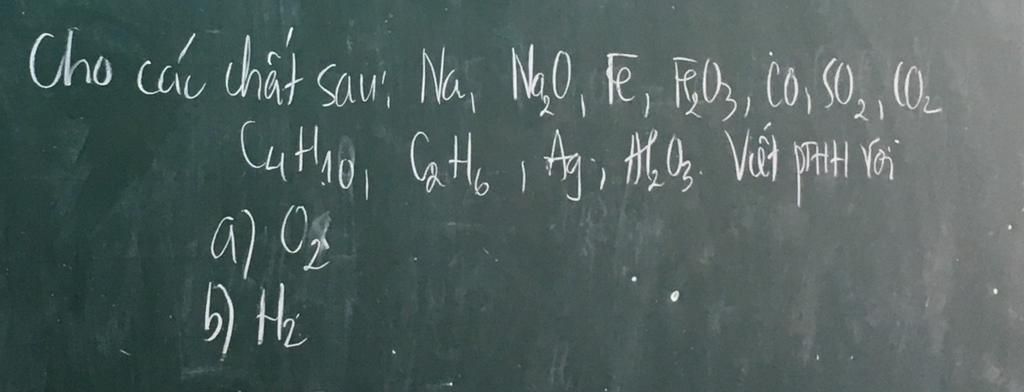 Cho các chất sau: Na, Na₂O, Fe, Fe₂O₃, CO, SO₂, CO₂
C₄H₁₀, C₂H₆, Ag, Al₂O₃. Viết pTHH với
a) O₂
b) H₂